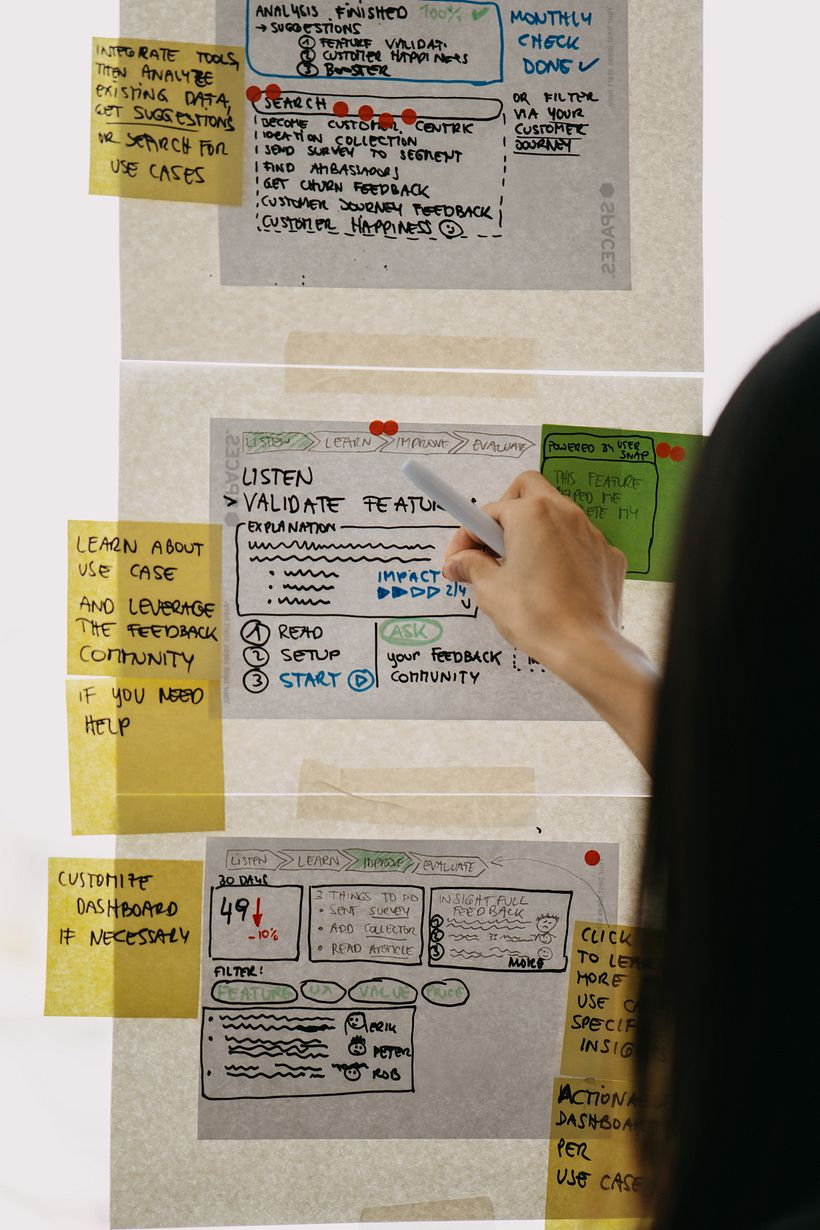 ANALYSIS FINISHED 100% ✓
→ SUGGESTIONS
① FEATURE VALIDAT.
② CUSTOMER HAPPINESS
③ BOOSTER
MONTHLY
CHECK
DONE ✓
INTEGRATE TOOLS,
THEN ANALYZE
EXISTING DATA,
GET SUGGESTIONS
OR SEARCH FOR
USE CASES
SEARCH
BECOME CUSTOMER CENTRIK
IDEATION COLLECTION
SEND SURVEY TO SEGMENT
FIND AMBASSADORS
GET CHURN FEEDBACK
CUSTOMER JOURNEY FEEDBACK
CUSTOMER HAPPINESS
OR FILTER
VIA YOUR
CUSTOMER
JOURNEY
SPACES.
LISTEN LEARN IMPROVE EVALUATE
LISTEN
VALIDATE
EXPLANATION
IMPACT
2/4
① READ
② SETUP
③ START
ASK
your FEEDBACK
COMMUNITY
POWERED BY USER
SNAP
THIS FEATURE
ME
MY
LEARN ABOUT
USE CASE
AND LEVERAGE
THE FEEDBACK
COMMUNITY
IF YOU NEED
HELP
LISTEN LEARN IMPROVE EVALUATE
30 DAYS
49
-10%
3 THINGS TO DO
• SENT SURVEY
• ADD COLLECTOR
• READ ARTICLE
INSIGHTFULL
FEEDBACK
①
②
③
MORE
FILTER:
FEATURE UX VALUE PRICE
ERIK
PETER
ROB
CUSTOMIZE
DASHBOARD
IF NECESSARY
CLICK
TO
MORE
USE
PER
USE CASE